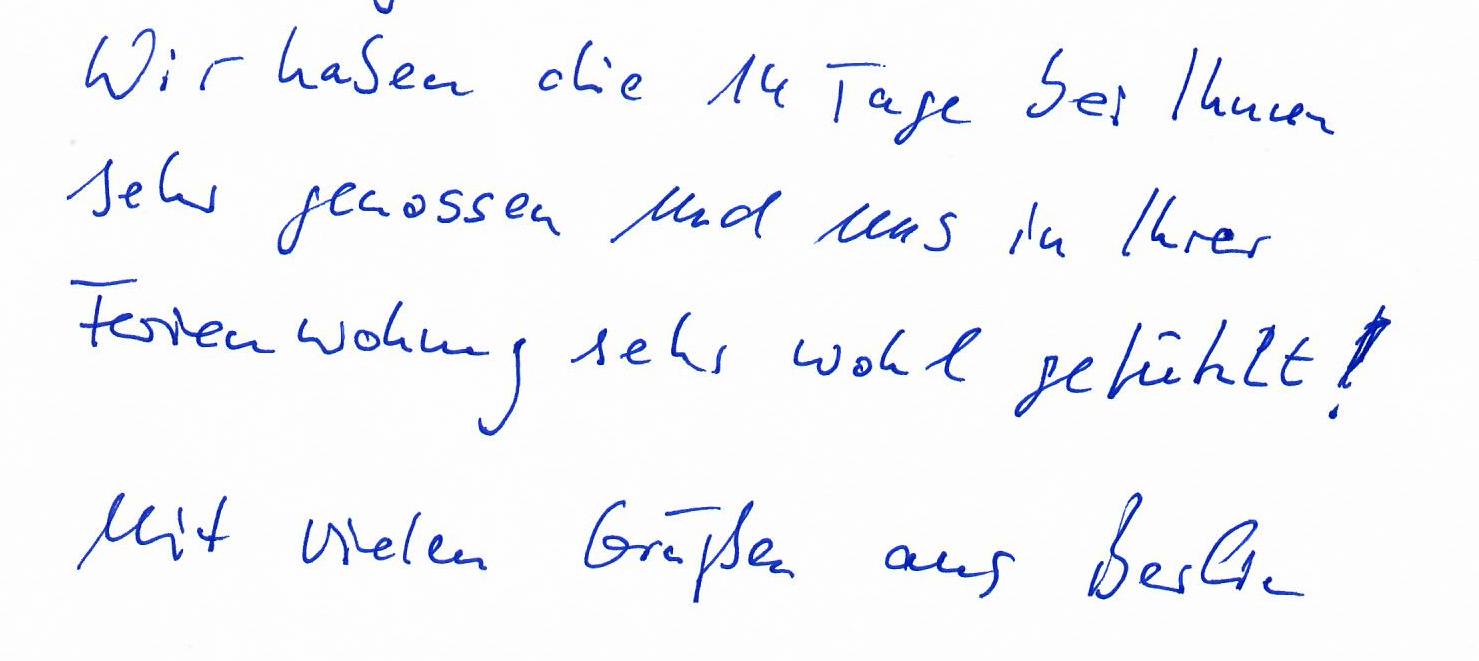 Wir haben die 14 Tage bei Ihnen
sehr genossen und uns in Ihrer
Ferienwohnung sehr wohl gefühlt!
Mit vielen Grüßen aus Berlin